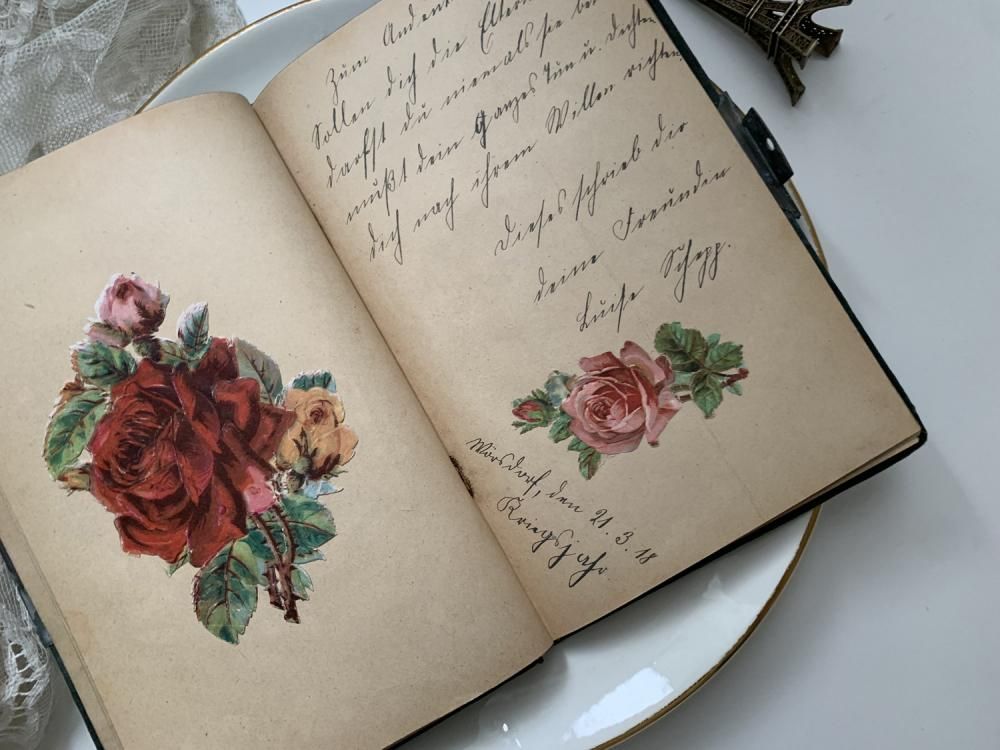 Zum Andenk
Sollen dich die Eltern
darfst du niemals sie be
mußt dein ganzes Tun u. Dichten
dich nach ihrem Willen richten.
Dieses schrieb dir
deine Freundin
Luise Schepp.
Wörsdorf, den 21.3.18
Kriegsjahr.